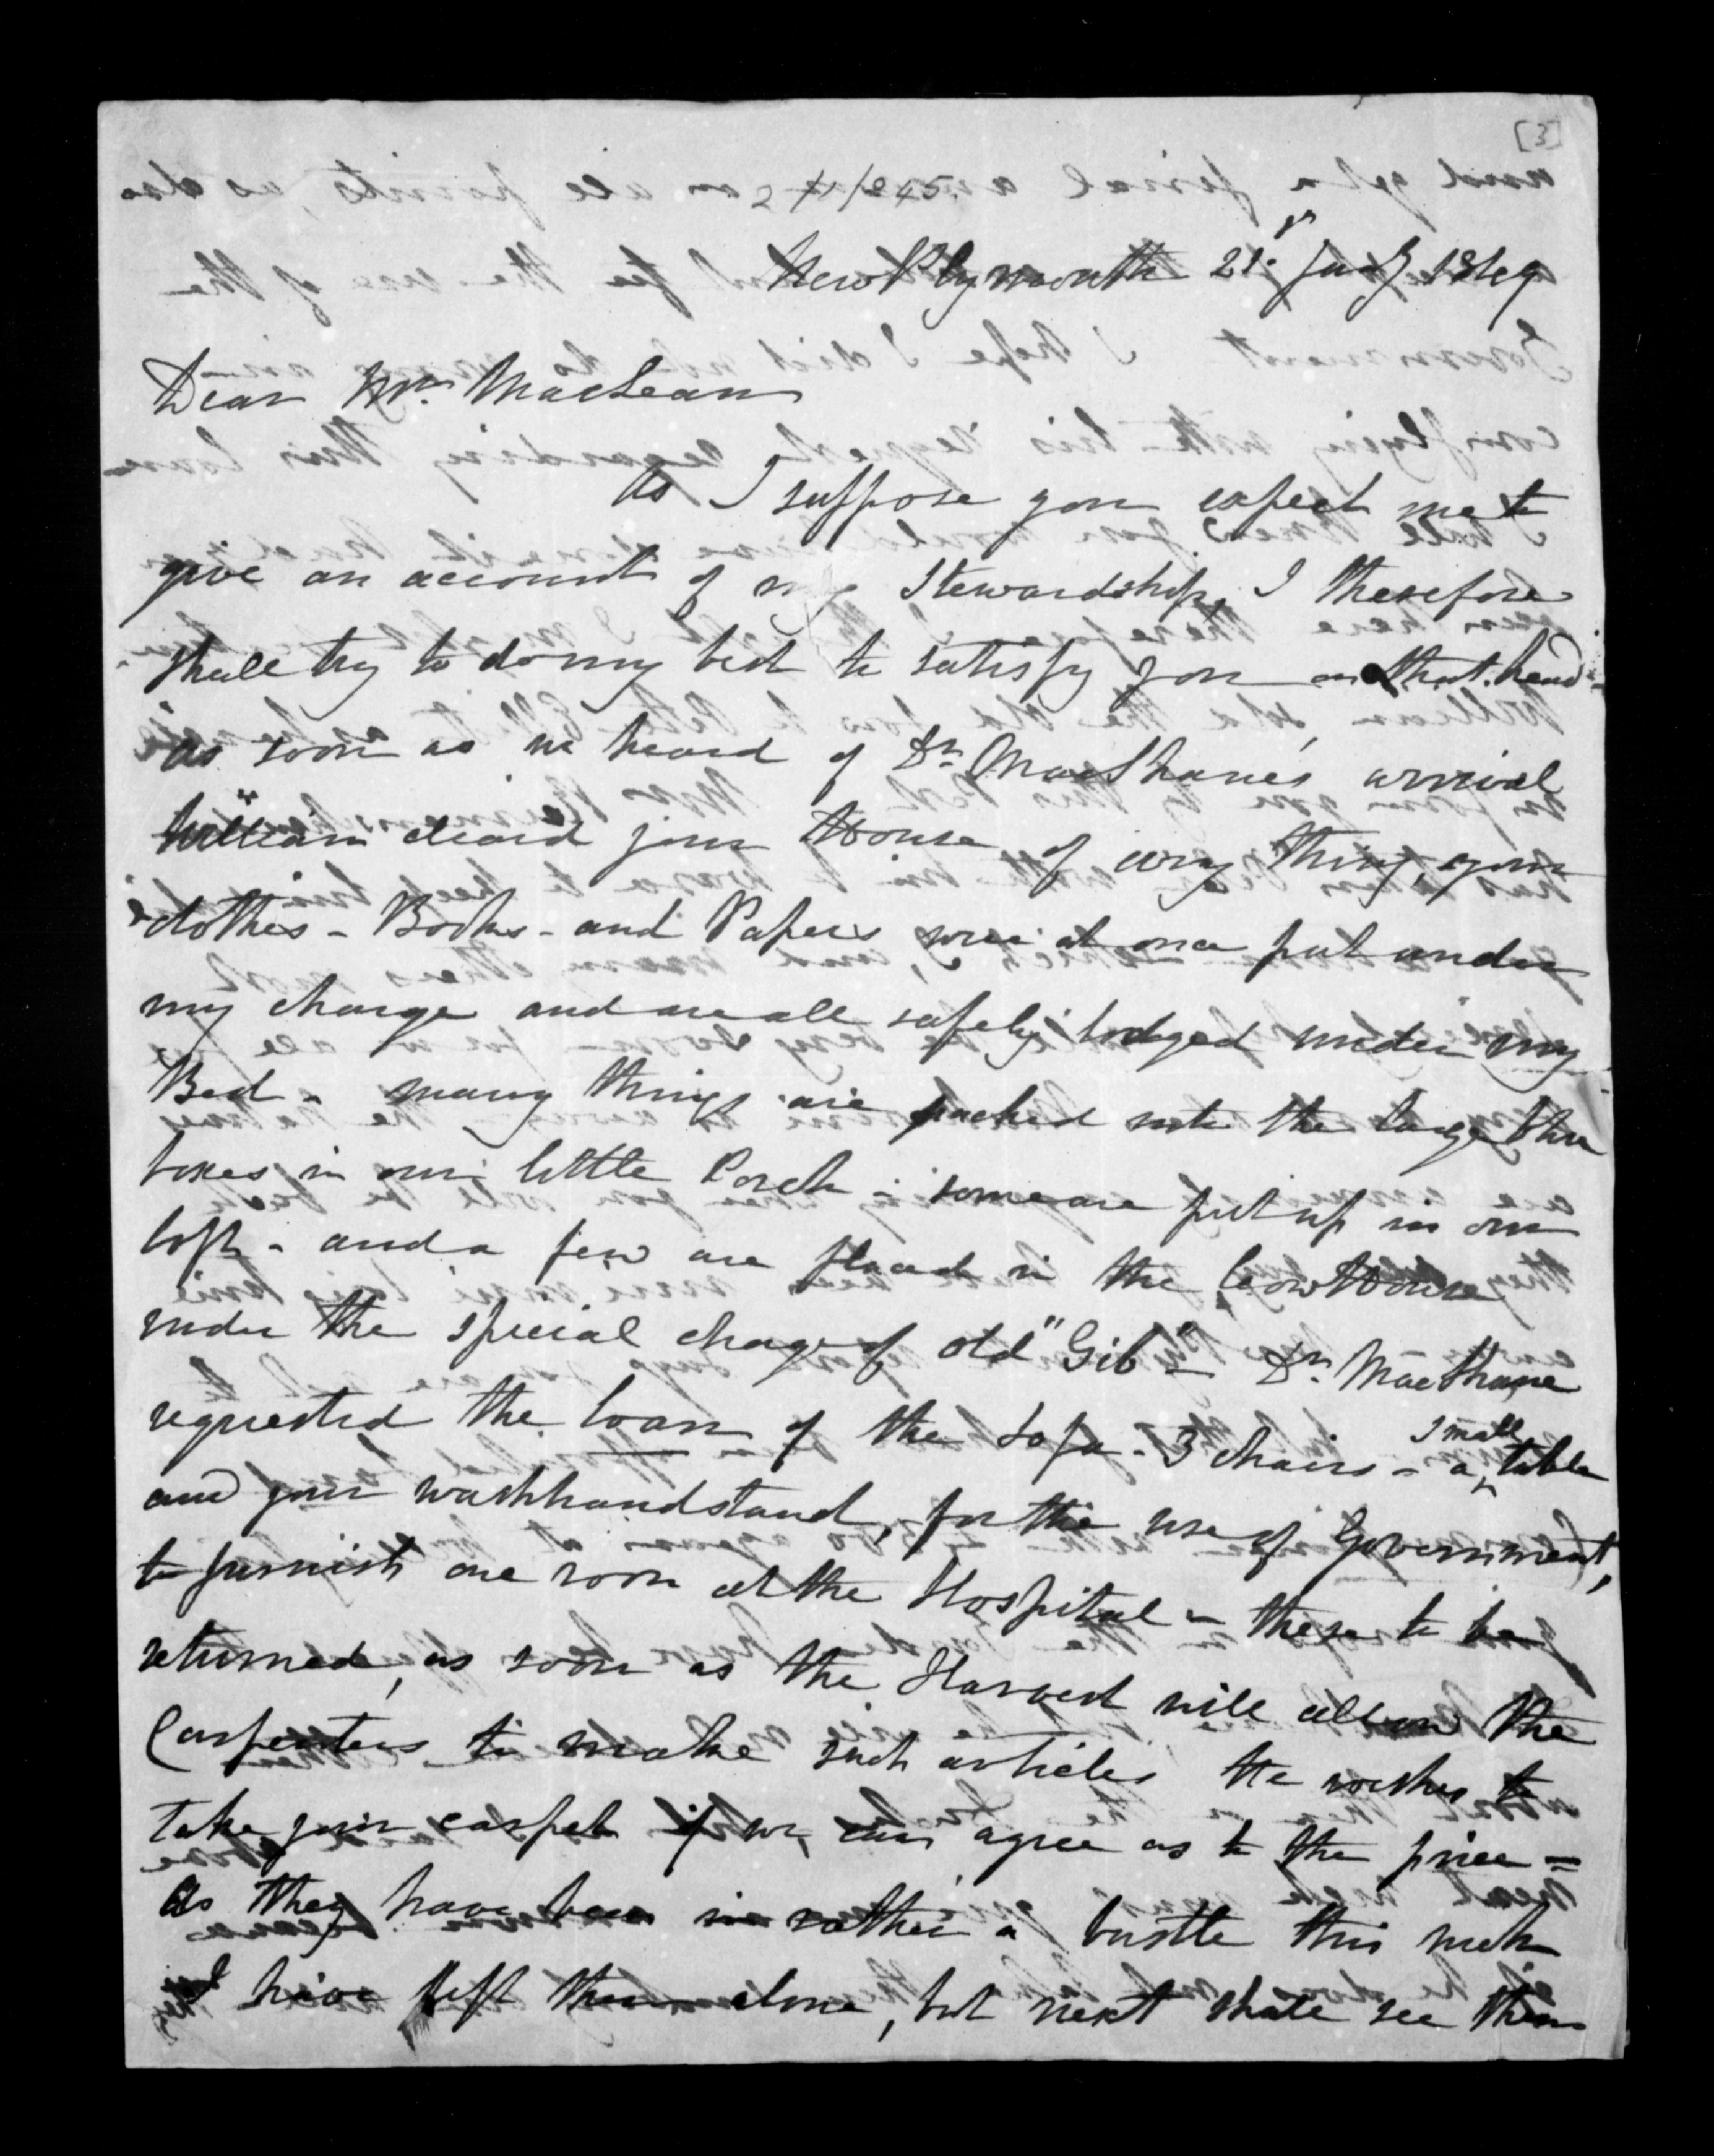 [3]
New Plymouth 21st Jany 1849
Dear Mr. MacLean
As I suppose you expect me to
give an account of my Stewardship, I therefore
shall try to do my best to satisfy you on that head
as soon as we heard of Dr. MacShane's arrival
William cleard your House of every thing, your
clothes - Books - and Papers were at once put under
my charge and are all safely lodged under my
Bed - many things are packed into the large
boxes in our little Porch - some are put up in our
loft - and a few are placed in the Cow House
under the special charge of old "Gib" - Dr. MacShane
requested the loan of the Sofa - 3 chairs - a small table
and your washhandstand, for the use of Government,
to furnish one room at the Hospital - these to be
returned, as soon as the Harvest will allow the
Carpenters to make such articles He wishes to
take your carpet if we can agree as to the price -
As they have been in rather a bustle this week
I have left them alone, but next shall see them